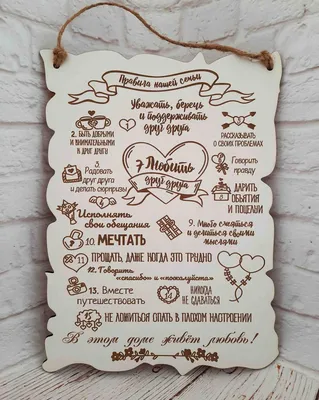 Правила нашей семьи
Уважать, беречь
и поддерживать
друг друга
1
2. Быть добрыми
и внимательными
к друг другу
Рассказывать
о своих проблемах
3.
Радовать
друг друга
и делать сюрпризы
Говорить
правду
7 Любить
друг друга
Дарить
объятия
и поцелуи
Исполнять
свои обещания
9. Много смеяться
и делиться своими
мыслями
10. МЕЧТАТЬ
11 Прощать, даже когда это трудно
12. Говорить
«спасибо» и «пожалуйста»
13. Вместе
путешествовать
14
Никогда
не сдаваться
15 Не ложиться спать в плохом настроении
В этом доме живёт любовь!